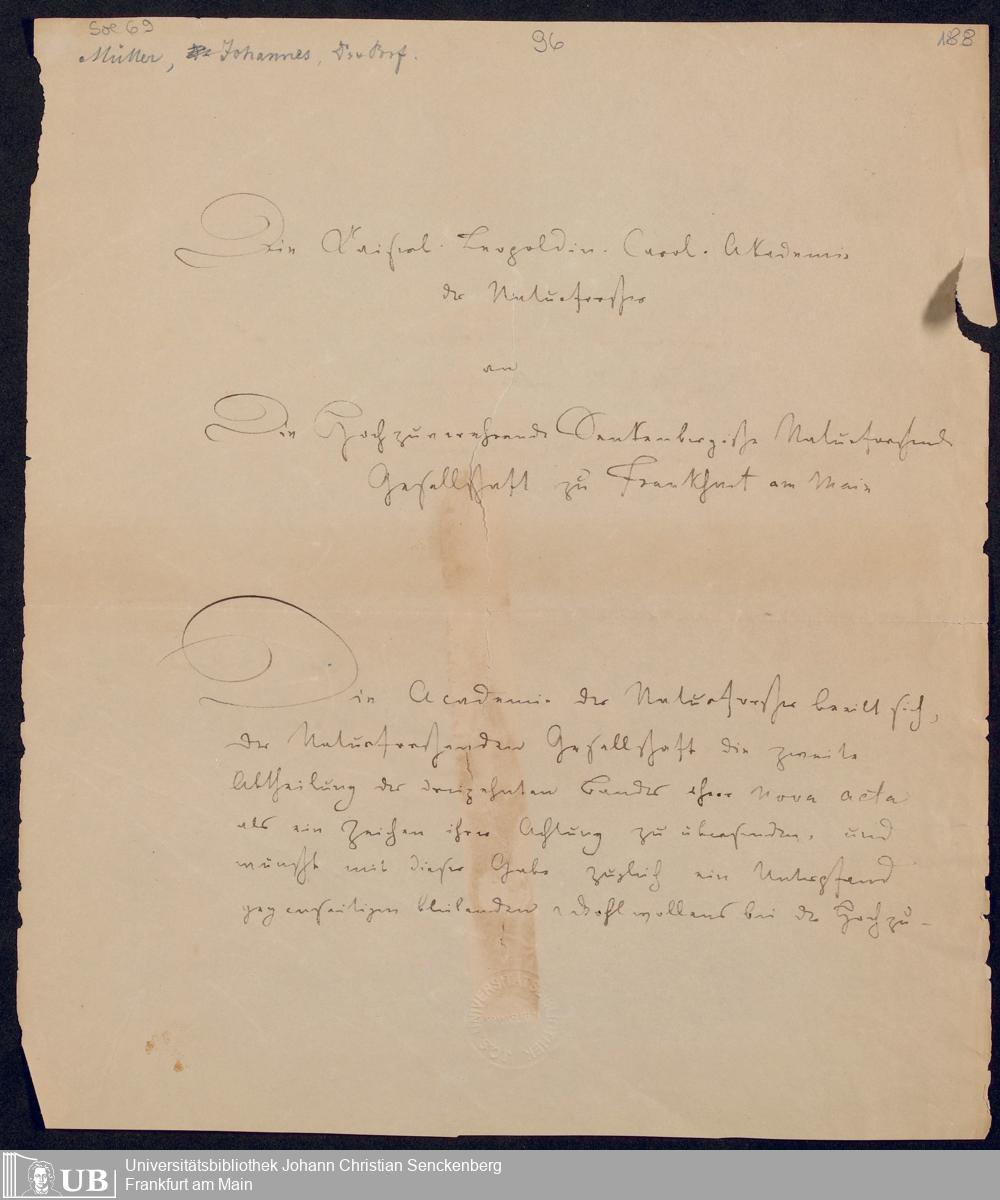 Soe 69
Müller, Johannes, Dr. Prof.
96
188
Die Kaiserl. Leopoldin. Carol. Akademie
der Naturforscher
an
Die Hochzuverehrende Senkenbergische Naturforschende
Gesellschaft zu Frankfurt am Main
Die Academie der Naturforscher beeilt sich,
der Naturforschenden Gesellschaft die zweite
Abtheilung des dreizehnten Bandes ihrer Nova acta
als ein Zeichen ihrer Achtung zu übersenden, und
wünscht mit dieser Gabe zugleich ein Unterpfand
gegenseitigen bleibenden Wohlwollens bei der Hochzu-
UB
Universitätsbibliothek Johann Christian Senckenberg
Frankfurt am Main